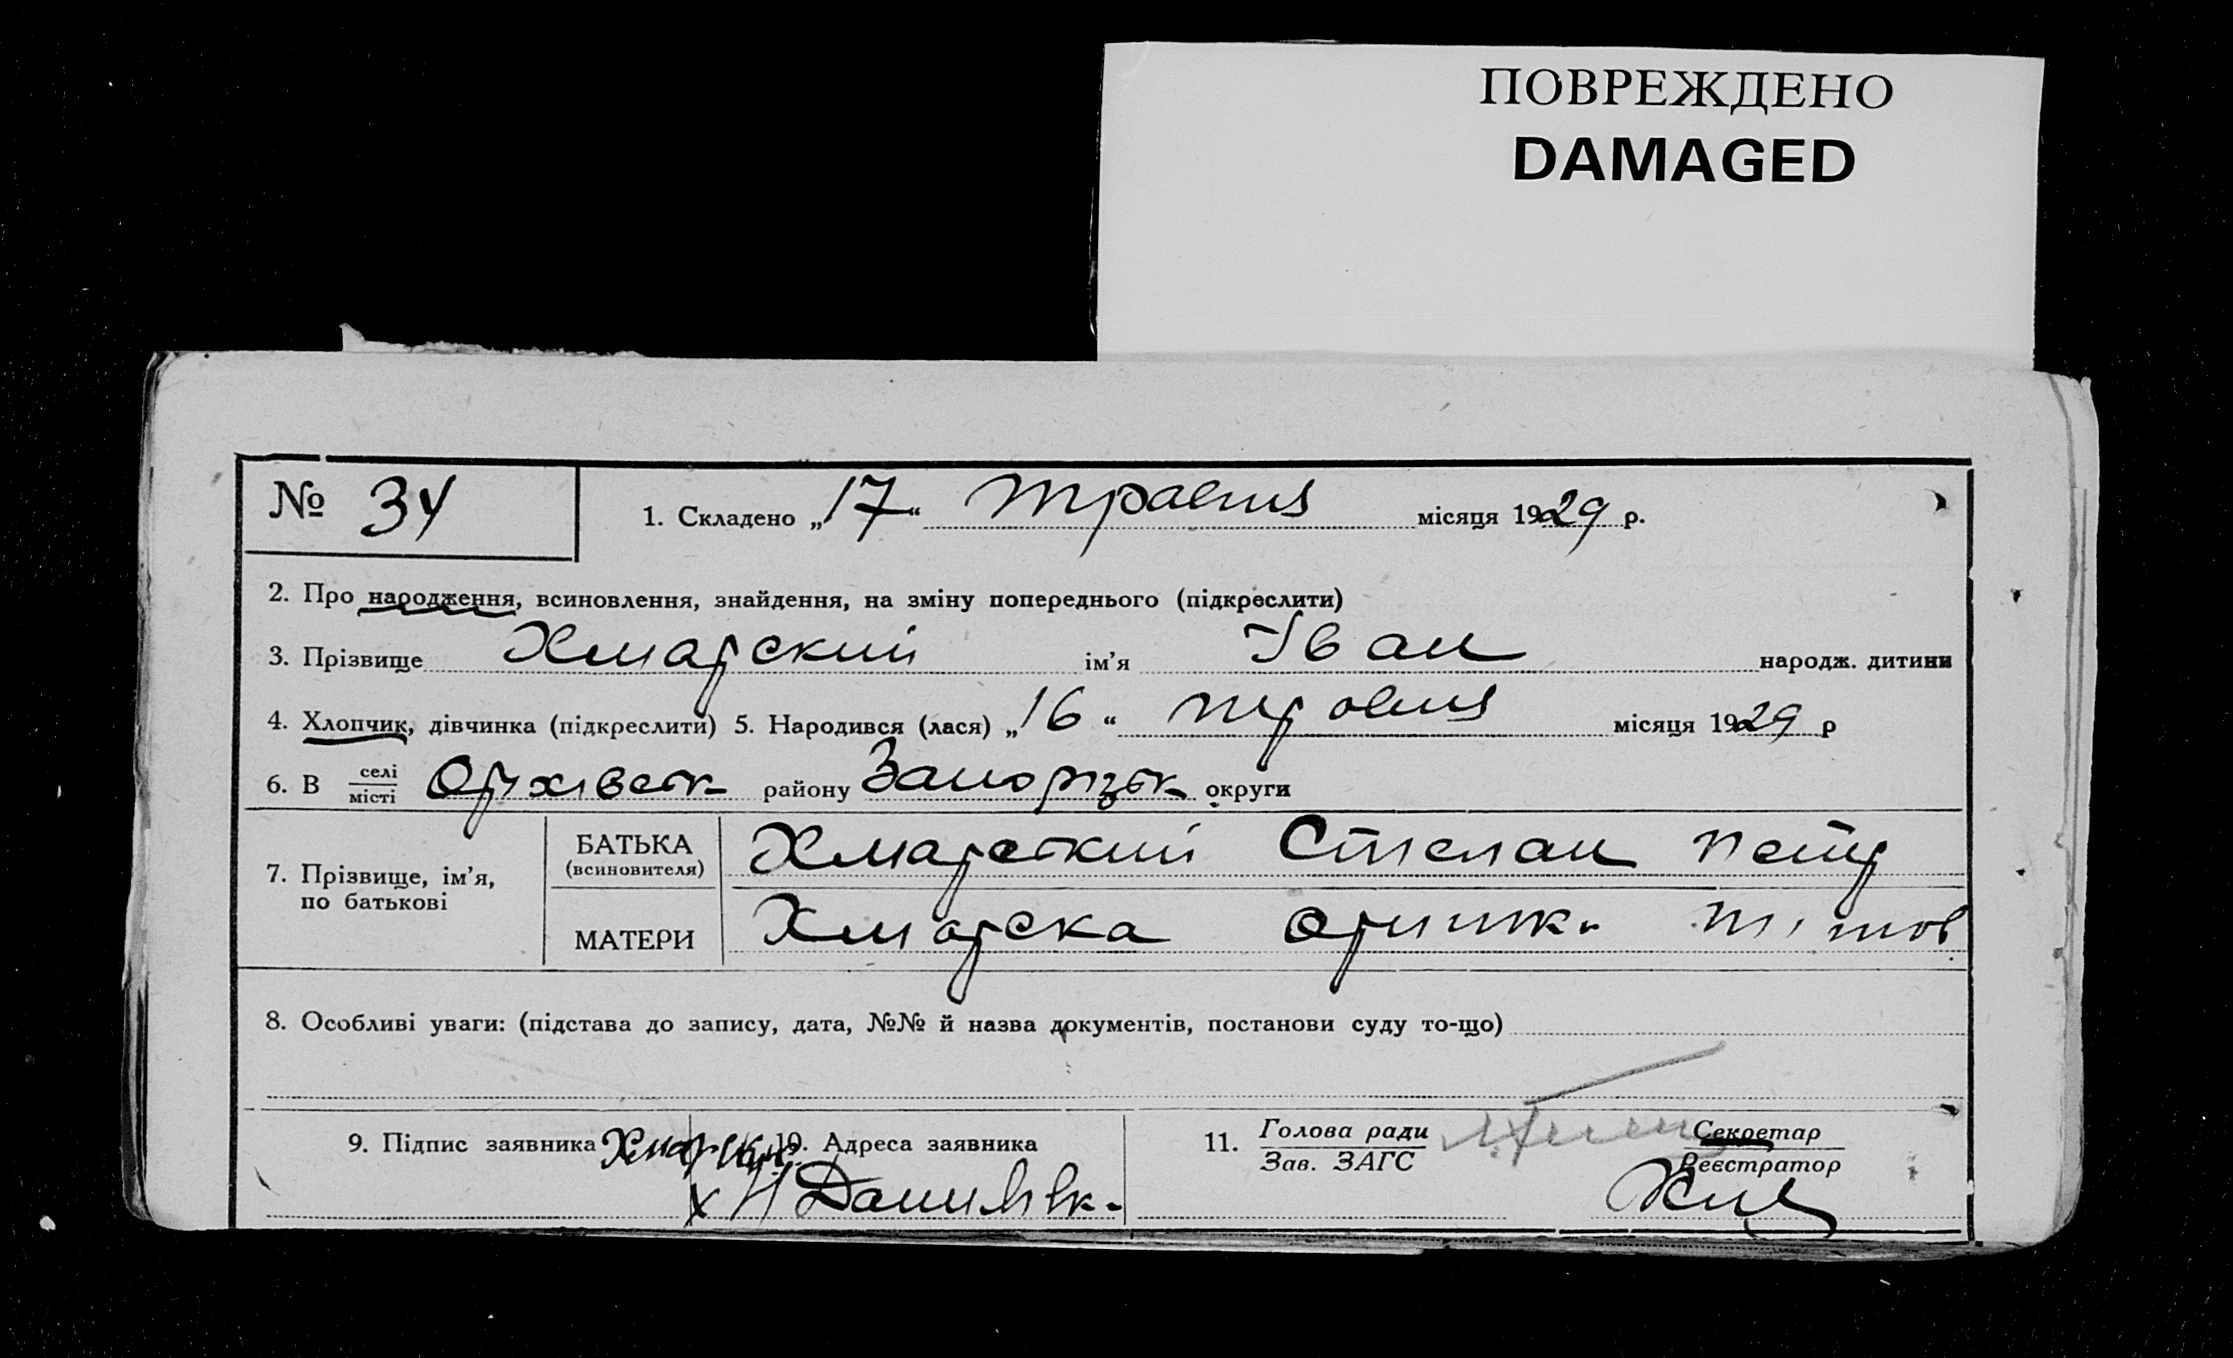 ПОВРЕЖДЕНО
DAMAGED
№ 34
1. Складено „17“ травня місяця 1929 р.
2. Про народження, всиновлення, знайдення, на зміну попереднього (підкреслити)
3. Прізвище Хмарский ім’я Іван народж. дитини
4. Хлопчик, дівчинка (підкреслити) 5. Народився (лася) „16“ травня місяця 1929 р
6. В селі
місті Оріхівськ району Запорізьк округи
7. Прізвище, ім’я,
по батькові
БАТЬКА
(всиновителя)
Хмарский Степан Петр
МАТЕРИ
Хмарска Оришк. Тітов
8. Особливі уваги: (підстава до запису, дата, №№ й назва документів, постанови суду то-що)
9. Підпис заявника 10. Адреса заявника
х Н Данилівк.
11. Голова ради
Зав. ЗАГС
Секретар
Реєстратор